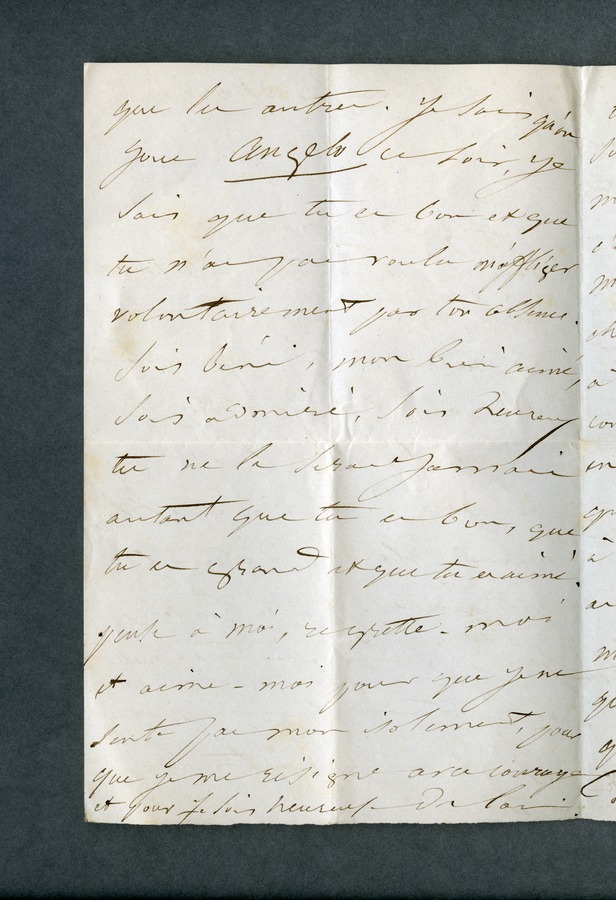 que les autres. Je sais qu'on
joue Angelo ce soir, je
sais que tu es bon et que
tu n'as pas voulu m'affliger
volontairement par ton absence.
Sois béni, mon bien aimé,
sois admiré, sois heureux
tu ne le seras jamais
autant que tu es bon, que
tu es grand et que tu es aimé.
pense à moi, regrette-moi
et aime-moi pour que je ne
sente pas mon isolement, pour
que je me résigne avec courage
et pour que je sois heureuse de loin.